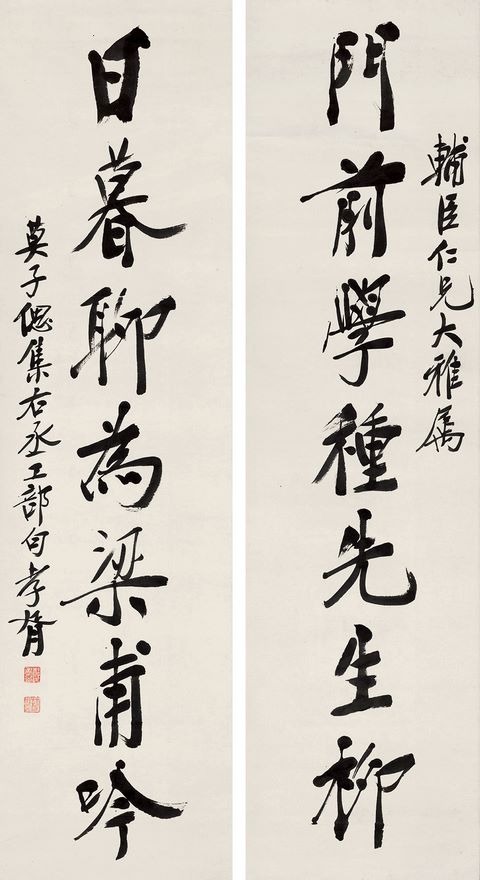 輔臣仁兄大雅屬
門前學種先生柳
日暮聊為梁甫吟
莫子偲集右丞工部句孝胥